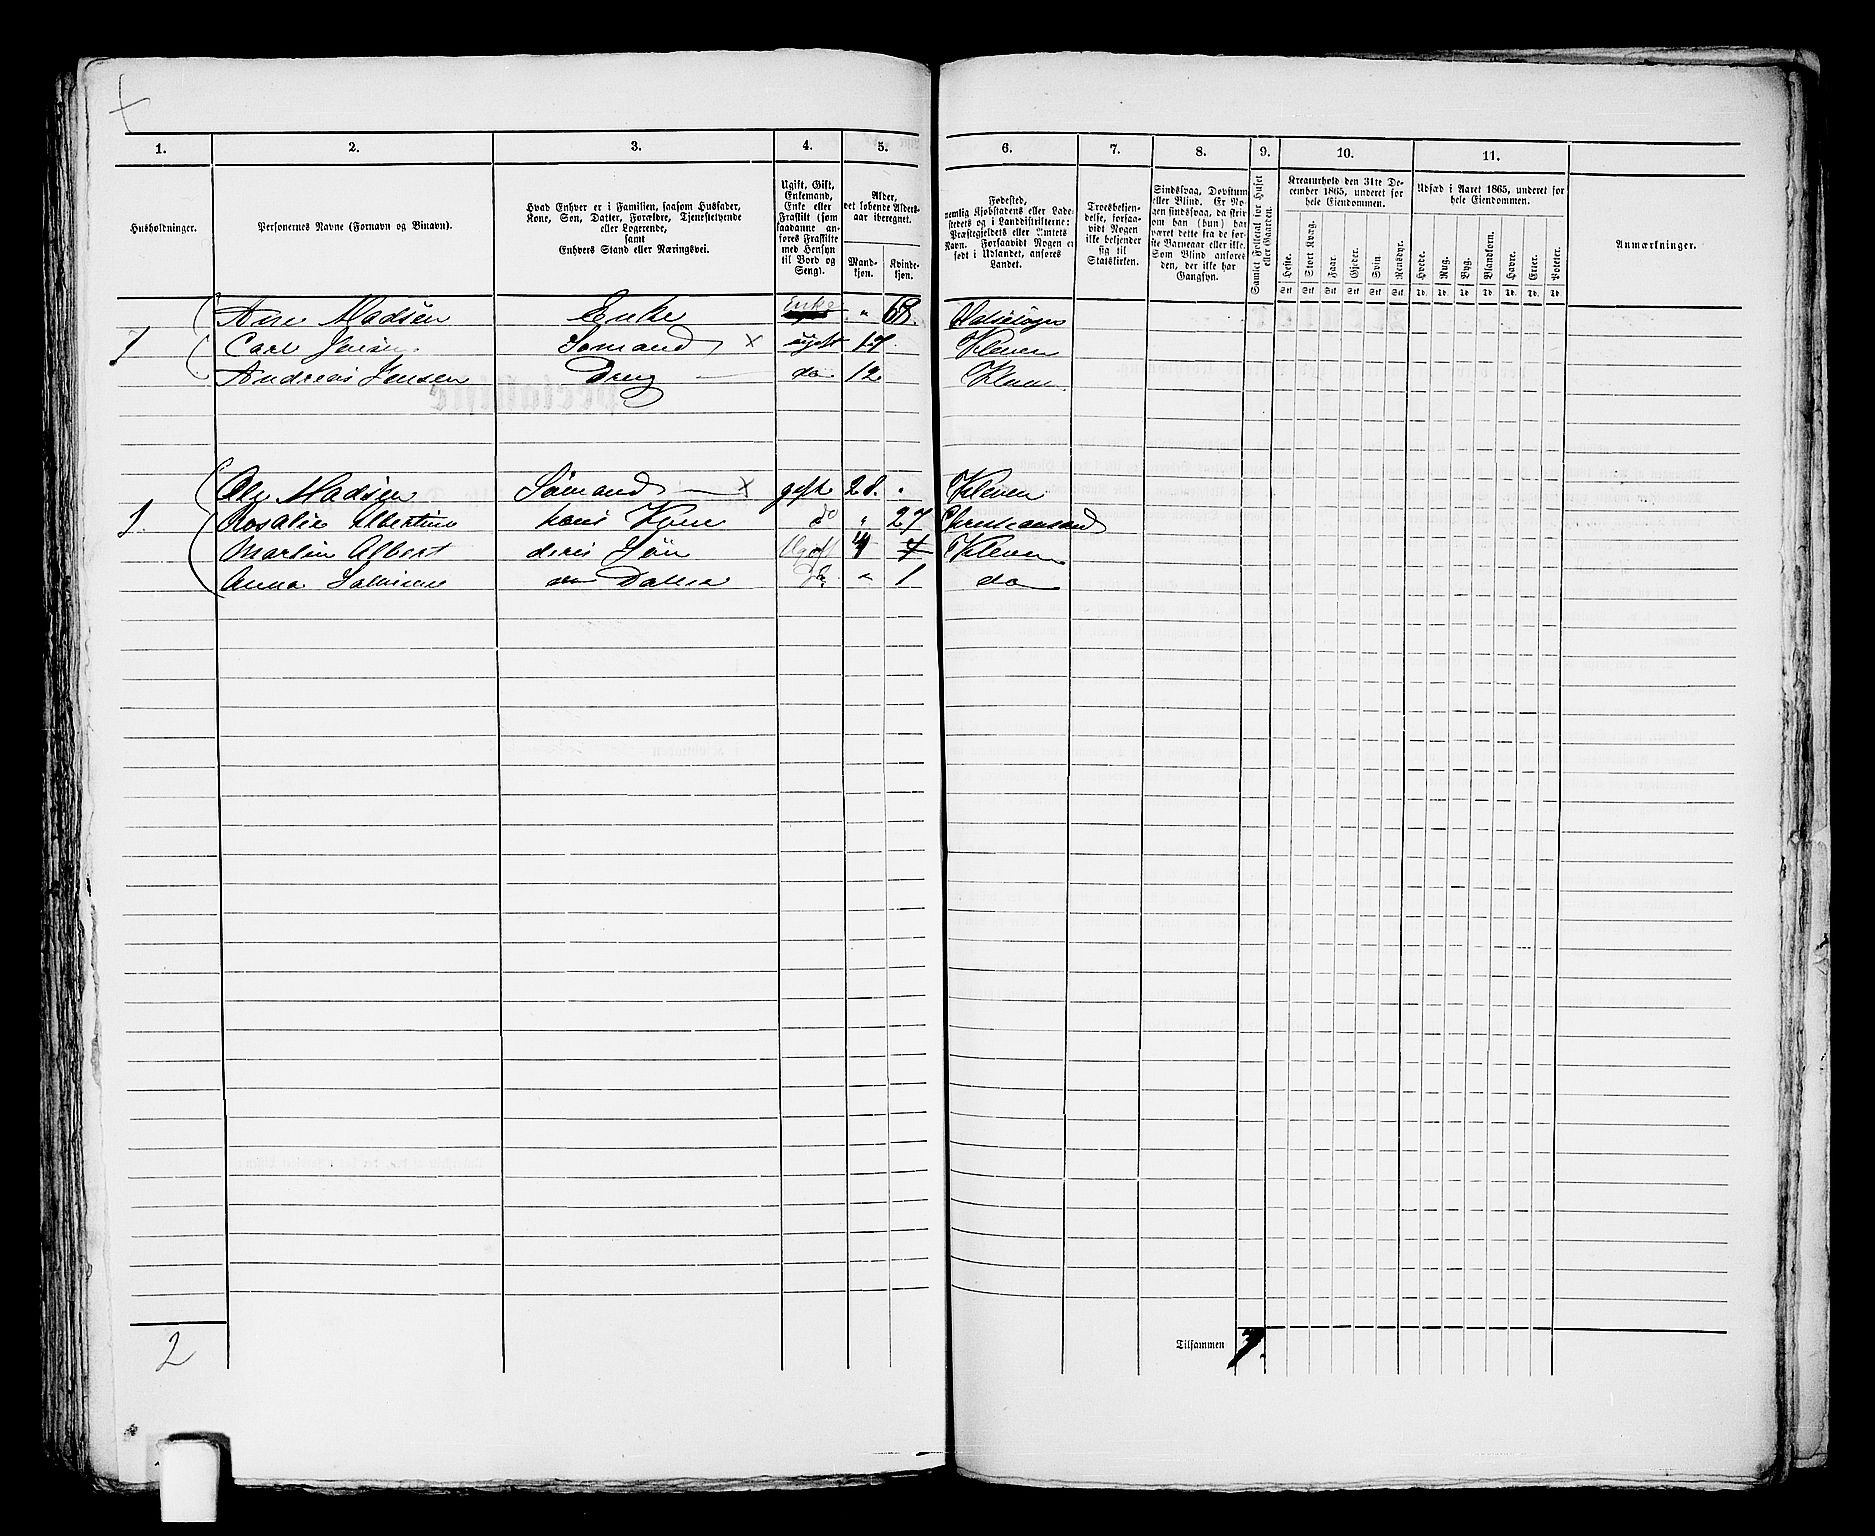 1. 2. 3. 4. 5. 6. 7. 8. 9. 10. 11.
Husholdninger.
Personernes Navne (Fornavn og Binavn).
Hvad Enhver er i Familien, saasom Husfader,
Kone, Søn, Datter, Forældre, Tjenestetyende
eller Logerende,
samt
Enhvers Stand eller Næringsvei.
Ugift, Gift,
Enkemand,
Enke eller
Fraskilt (som
saadanne an-
føres Fraskilte
med Hensyn
til Bord og
Seng).
Alder,
det løbende Alders-
aar iberegnet.
Mand-
kjøn.
Kvinde-
kjøn.
Fødested,
nemlig Kjøbstadens eller Lade-
stedets og i Landdistrikterne:
Præstegjeldets eller Amtets
Navn. Forsaavidt Nogen er
født i Udlandet, anføres
Landet.
Troesbekjen-
delse, forsaa-
vidt Nogen
ikke bekjender
sig til
Statskirken.
Sindssvag, Døvstum
eller Blind. Er No-
gen sindssvag, da skri-
ves om han (hun) har
været dette fra de før-
ste Barneaar eller ikke.
Som Blind anføres
den, der ikke har
Gangsyn.
Samlet Folketal for Huset
eller Gaarden.
Kreaturhold den 31te De-
cember 1865, underet for
hele Eiendommen.
Heste. Stort Kvæg. Faar. Gjeder. Svin. Rensdyr.
Stk Stk Stk Stk Stk Stk
Udsæd i Aaret 1865, underet for
hele Eiendommen.
Hvede. Rug. Byg. Blandkorn. Havre. Erter. Poteter.
Td. Td. Td. Td. Td. Td. Td.
Anmærkninger.
Ane Madsen Enke Enke " 68.
1 Carl Jensen Sømand x ugift 17 Kleven
Andreas Jensen Dreng do 12 Kleven
Ole Madsen Sømand x gift 28. Kleven
1. Rosalie Albertine hans Kone do " 27 Christiansand
Martin Albert deres Søn Ugift 4 Kleven
Anna do Datter Do " 1 do
2
Tilsammen 7.